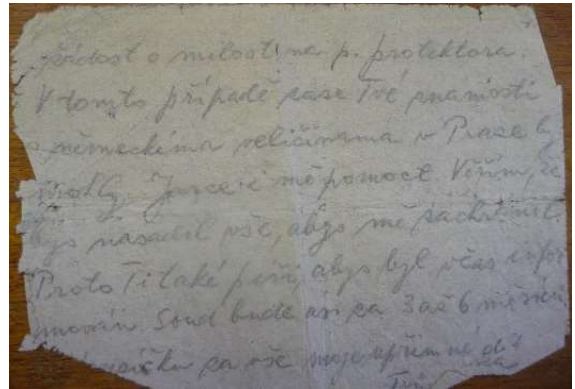 žádost o milost na p. protektora.
V tomto případě zase Tvé známosti
s německýma veličinama v Praze by
mohly Jarce i mě pomoct. Věřím, že
bys nasadil vše, abys mě zachránil.
Proto Ti také píši, abys byl včas infor
mován. Soud bude asi za 3 až 6 měsíců
za vše moje upřímné